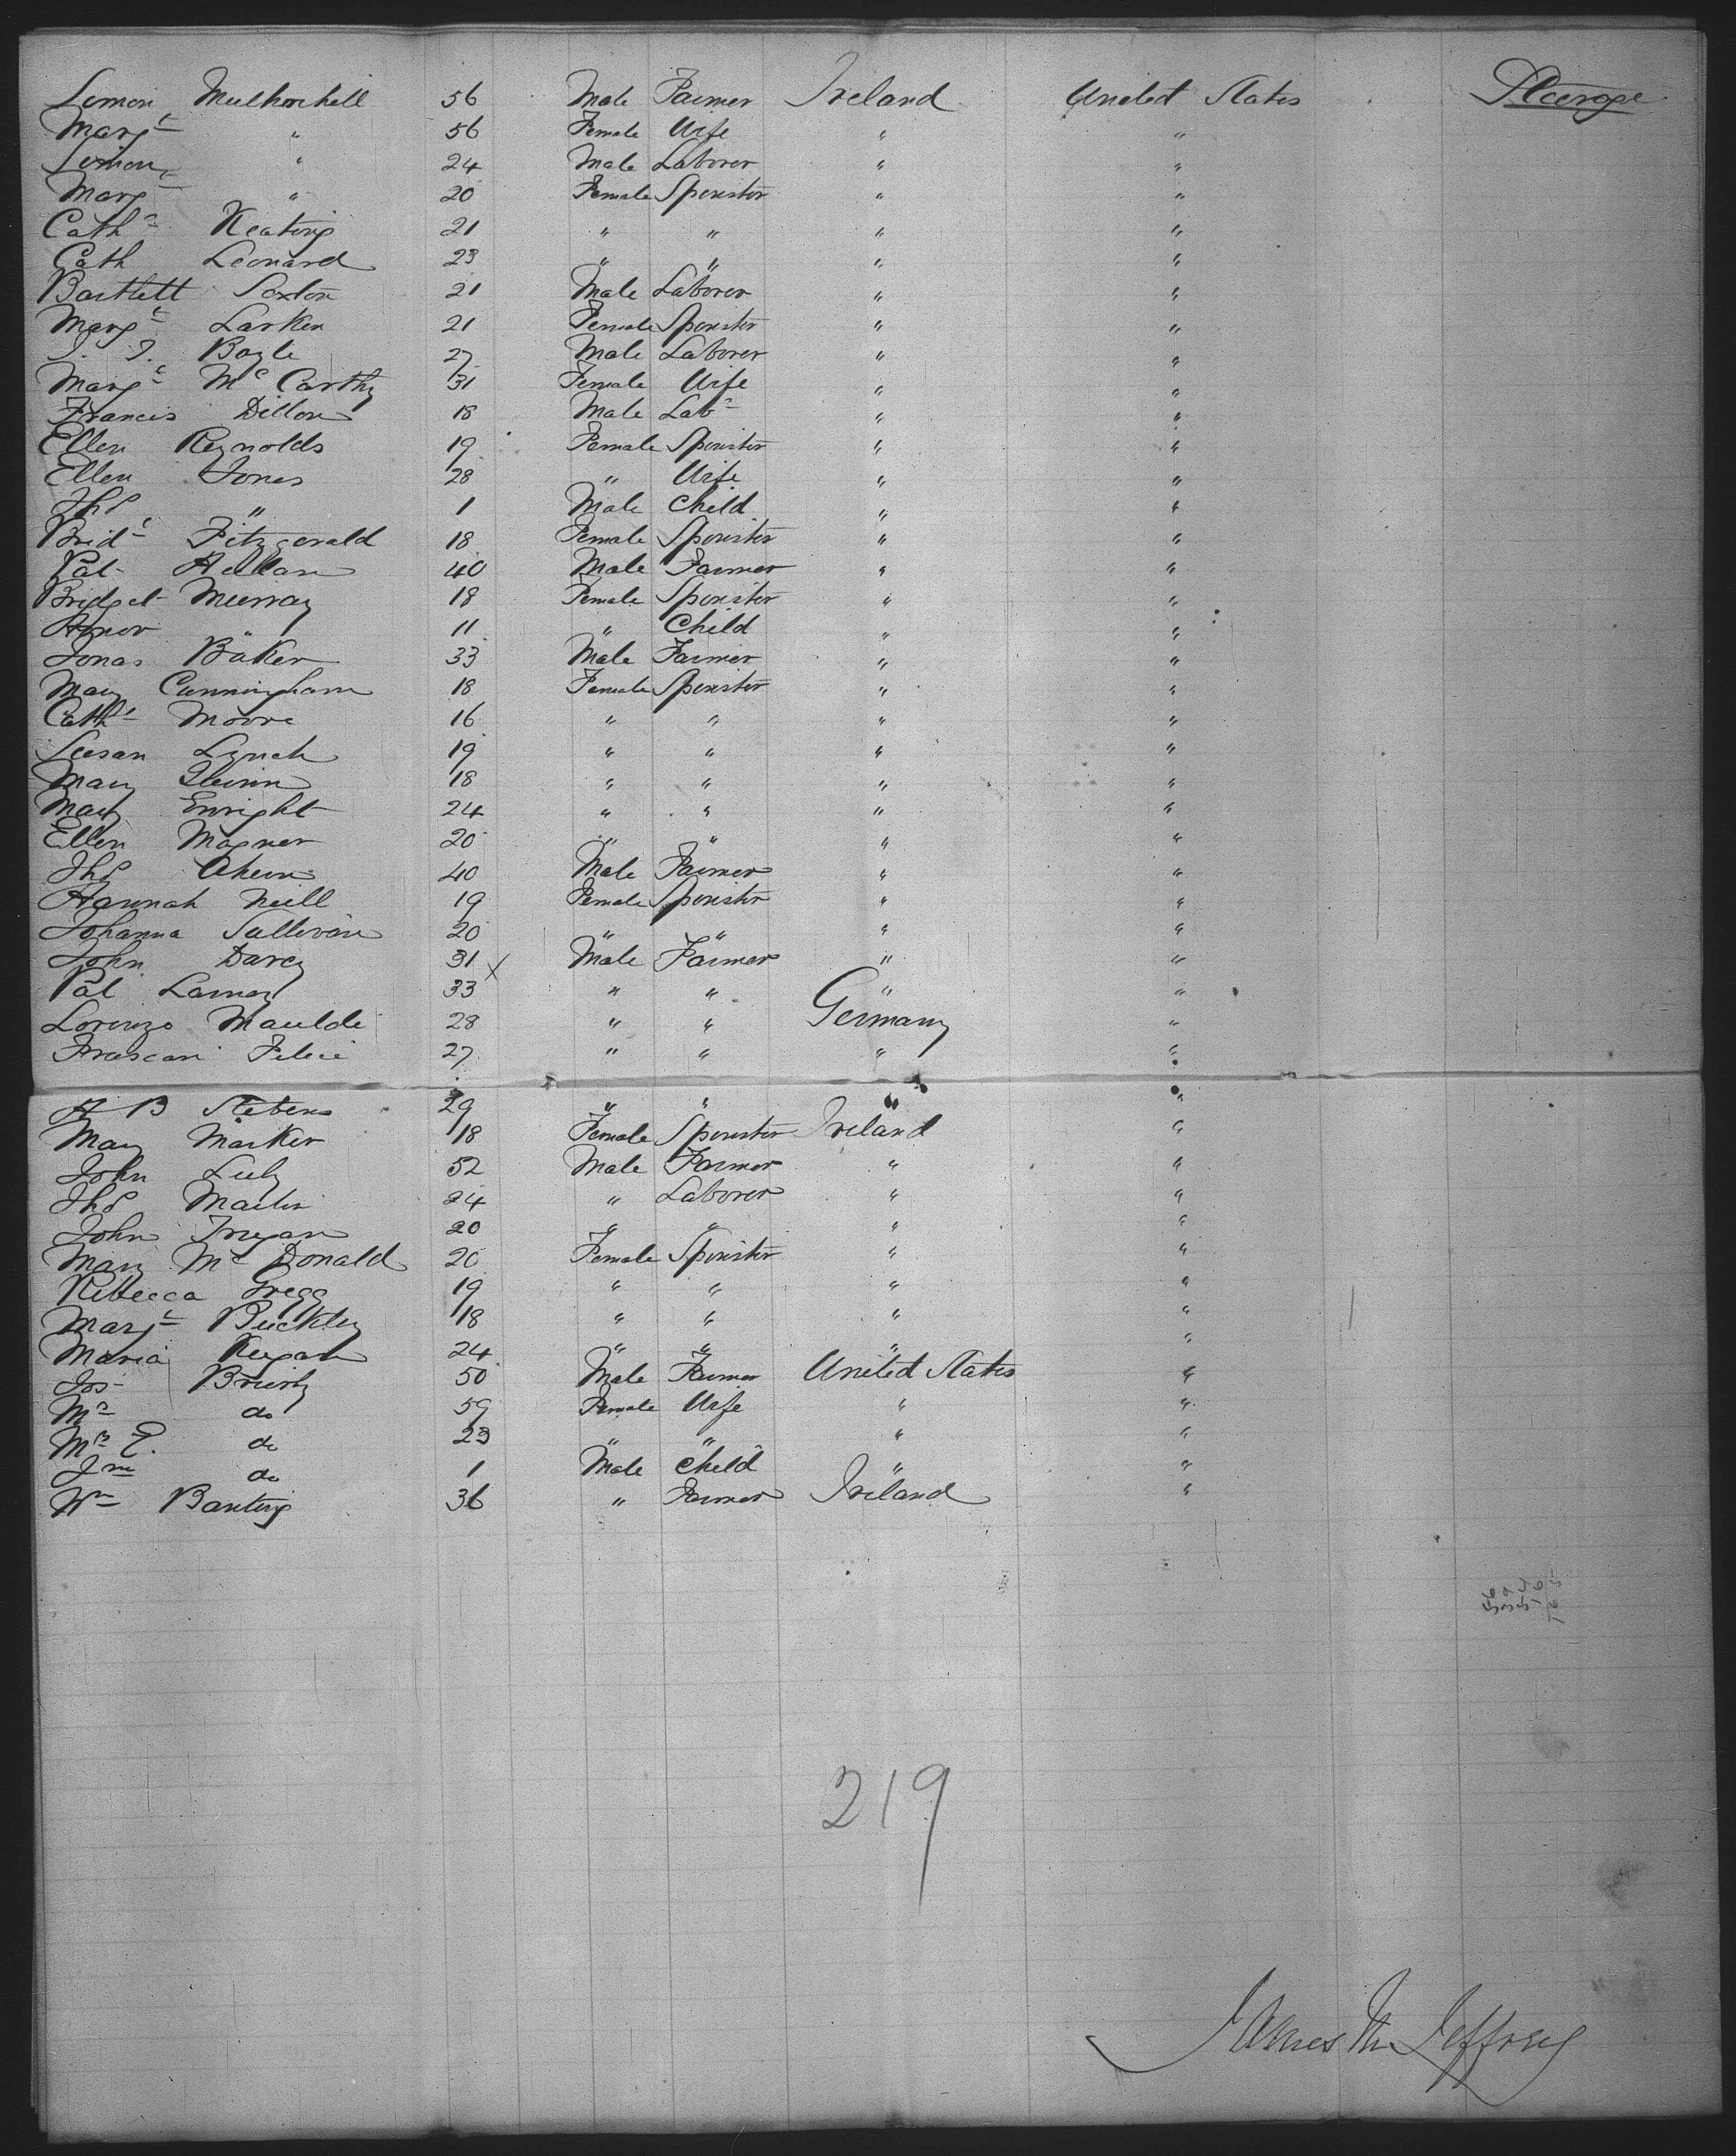 Simon Mulhorhill 56 Male Farmer Ireland United States Steerage
Margt " 56 Female Wife " "
Simon " 24 Male Laborer " "
Margt " 20 Female Spinster " "
Cathe Keating 21 " " " "
Cath Leonard 23 " " " "
Bartlett Sexton 21 Male Laborer " "
Margt Larken 21 Female Spinster " "
J. J. Boyle 27 Male Laborer " "
Margt McCarthy 31 Female Wife " "
Francis Dillon 18 Male Labr " "
Ellen Reynolds 19 Female Spinster " "
Ellen Jones 28 " Wife " "
Thos " 1 Male Child " "
Bridt Fitzgerald 18 Female Spinster " "
Pat 40 Male Farmer " "
Bridget Murray 18 Female Spinster " "
Honor " 11 " Child " "
Jonas Baker 33 Male Farmer " "
Mary Cunningham 18 Female Spinster " "
Cathe Moore 16 " " " "
Susan Lynch 19 " " " "
Mary Quinn 18 " " " "
Mary Enright 24 " " " "
Ellen Magner 20 " " " "
Thos Ahern 40 Male Farmer " "
Hannah Neill 19 Female Spinster " "
Johanna Sullivan 20 " " " "
John Darcy 31 x Male Farmer " "
Pat 33 " " " "
Lorenzo Maulde 28 " " Germany "
Frascari Felice 27 " " " "
A B Stebens 29 " " " "
Mary Marker 18 Female Spinster Ireland "
John Luby 52 Male Farmer " "
Thos Martin 24 " Laborer " "
John 20 " " " "
Mary McDonald 20 Female Spinster " "
Rebecca Gregg 19 " " " "
Margt Buckley 18 " " " "
Maria Keegan 24 " " " "
Jos 50 Male Farmer United States "
Mrs do 59 Female Wife " "
Mrs E. do 23 " " " "
Jno do 1 Male Child " "
Wm Banting 36 " Farmer Ireland "
219
James M Jeffrey